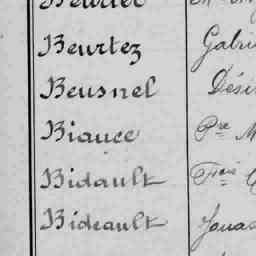 Beurtez Gabri
Beusnel Dési
Biauce Pre M
Bidault Fois
Bideault Jouas